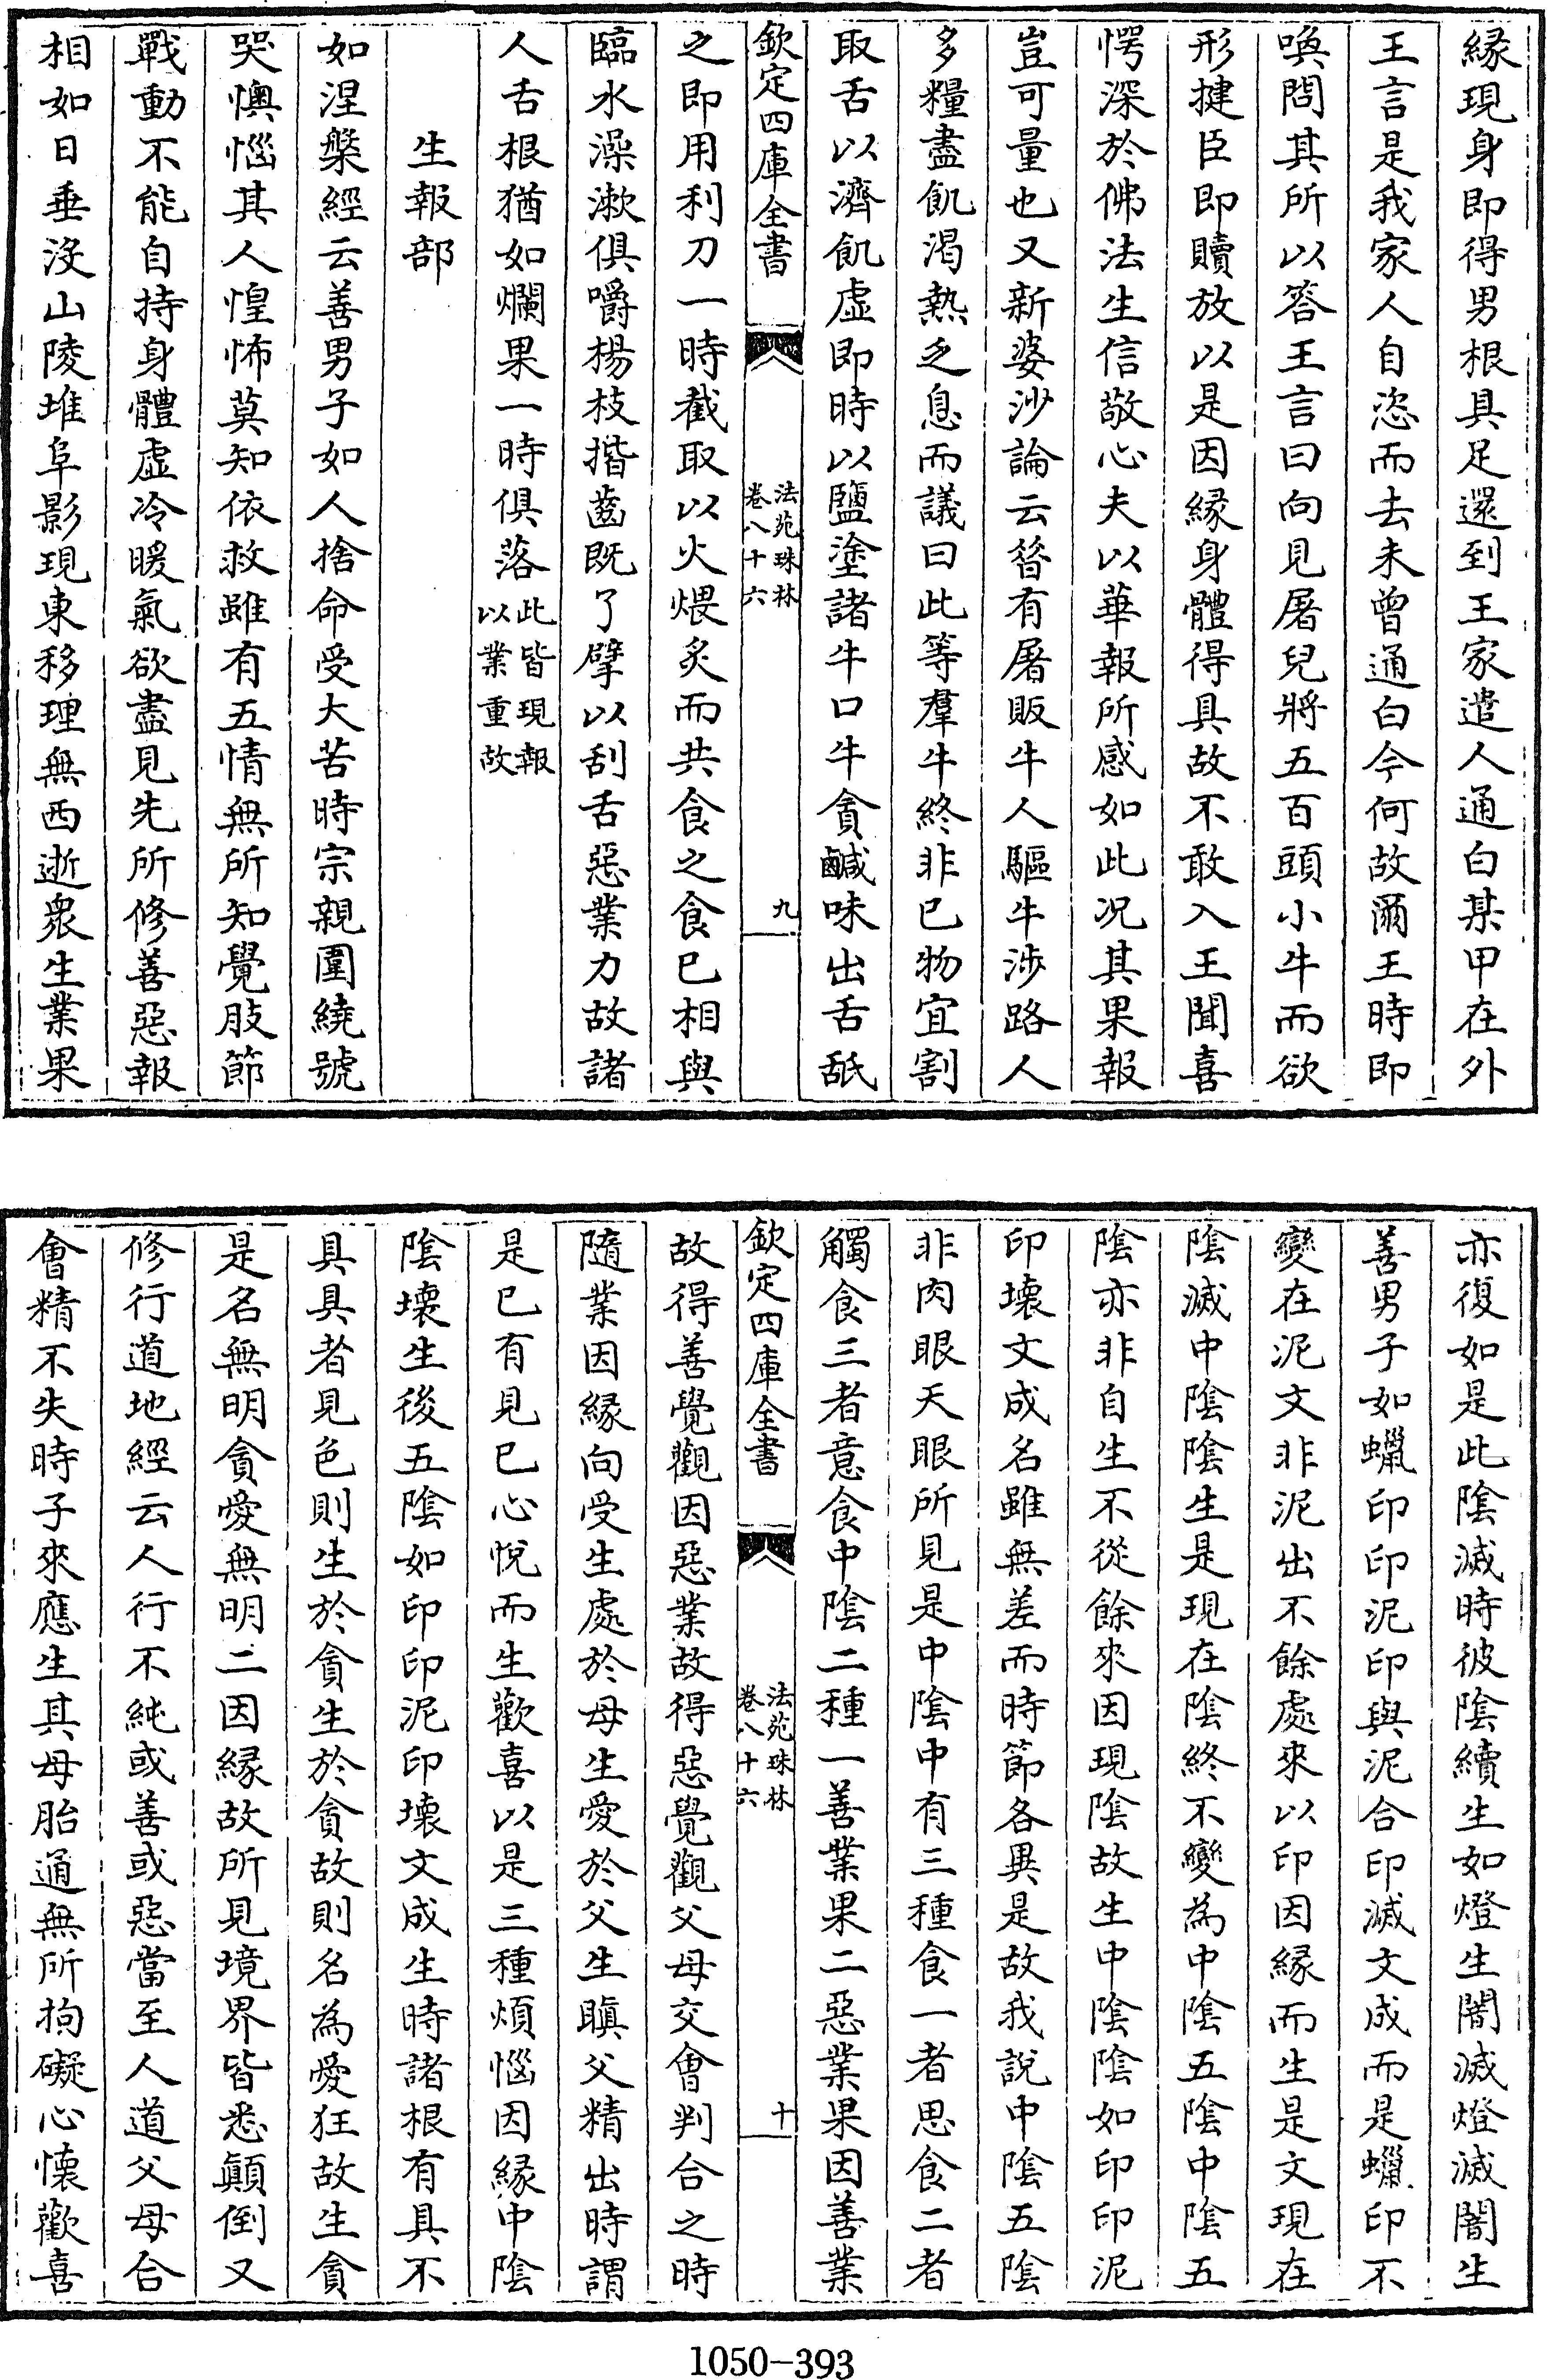 縁現身即得男根具足還到王家遣人通白某甲在外
王言是我家人自恣而去未曾通白今何故爾王時即
喚問其所以答王言曰向見屠兒將五百頭小牛而欲
形揵臣即贖放以是因縁身體得具故不敢入王聞喜
愕深於佛法生信敬心夫以華報所感如此况其果報
豈可量也又新婆沙論云昝有屠販牛人驅牛涉路人
多糧盡飢渇熱乏息而議曰此等羣牛終非已物宜割
取舌以濟飢虛即時以鹽塗諸牛口牛貪鹹味出舌舐
欽定四庫全書
法苑珠林
卷八十六
九
之即用利刀一時截取以火煨炙而共食之食已相與
臨水澡漱俱嚼楊枝揩齒既了擘以刮舌惡業力故諸
人舌根猶如爛果一時俱落此皆現報以業重故
生報部
如涅槃經云善男子如人捨命受大苦時宗親圍繞號
哭懊惱其人惶怖莫知依救雖有五情無所知覺肢節
戰動不能自持身體虛冷暖氣欲盡見先所修善惡報
相如日垂沒山陵堆阜影現東移理無西逝衆生業果
亦復如是此陰滅時彼陰續生如燈生闇滅燈滅闇生
善男子如蠟印印泥印與泥合印滅文成而是蠟印不
變在泥文非泥出不餘處來以印因縁而生是文現在
陰滅中陰陰生是現在陰終不變為中陰五陰中陰五
陰亦非自生不從餘來因現陰故生中陰陰如印印泥
印壞文成名雖無差而時節各異是故我說中陰五陰
非肉眼天眼所見是中陰中有三種食一者思食二者
觸食三者意食中陰二種一善業果二惡業果因善業
欽定四庫全書
法苑珠林
卷八十六
十
故得善覺觀因惡業故得惡覺觀父母交會判合之時
隨業因縁向受生處於母生愛於父生瞋父精出時謂
是已有見已心悅而生歡喜以是三種煩惱因縁中陰
陰壞生後五陰如印印泥印壞文成生時諸根有具不
具具者見色則生於貪生於貪故則名為愛狂故生貪
是名無明貪愛無明二因縁故所見境界皆悉顛倒又
修行道地經云人行不純或善或惡當至人道父母合
會精不失時子來應生其母胎通無所拘礙心懷歡喜
1050-393